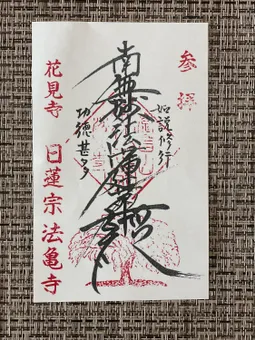 参拝
如説修行
南無妙法蓮華経
功徳甚多
花見寺
日蓮宗 法亀寺